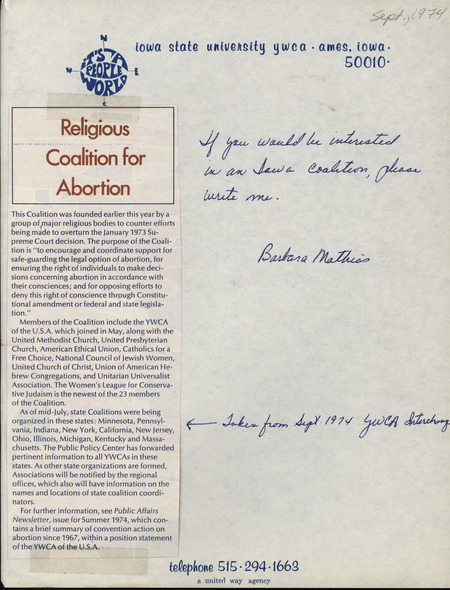 Sept., 1974
iowa state university ywca · ames, iowa ·
50010 ·
N
W E
IT'S A
PEOPLE
WORLD
S
Religious
Coalition for
Abortion
This Coalition was founded earlier this year by a
group of major religious bodies to counter efforts
being made to overturn the January 1973 Su-
preme Court decision. The purpose of the Coali-
tion is "to encourage and coordinate support for
safe-guarding the legal option of abortion, for
ensuring the right of individuals to make deci-
sions concerning abortion in accordance with
their consciences; and for opposing efforts to
deny this right of conscience through Constitu-
tional amendment or federal and state legisla-
tion."
Members of the Coalition include the YWCA
of the U.S.A. which joined in May, along with the
United Methodist Church, United Presbyterian
Church, American Ethical Union, Catholics for a
Free Choice, National Council of Jewish Women,
United Church of Christ, Union of American He-
brew Congregations, and Unitarian Universalist
Association. The Women's League for Conserva-
tive Judaism is the newest of the 23 members
of the Coalition.
As of mid-July, state Coalitions were being
organized in these states: Minnesota, Pennsyl-
vania, Indiana, New York, California, New Jersey,
Ohio, Illinois, Michigan, Kentucky and Massa-
chusetts. The Public Policy Center has forwarded
pertinent information to all YWCAs in these
states. As other state organizations are formed,
Associations will be notified by the regional
offices, which also will have information on the
names and locations of state coalition coordi-
nators.
For further information, see Public Affairs
Newsletter, issue for Summer 1974, which con-
tains a brief summary of convention action on
abortion since 1967, within a position statement
of the YWCA of the U.S.A.
If you would be interested
in an Iowa coalition, please
write me.
Barbara Mathias
← Taken from Sept 1974 YWCA Interchang
telephone 515-294-1663
a united way agency